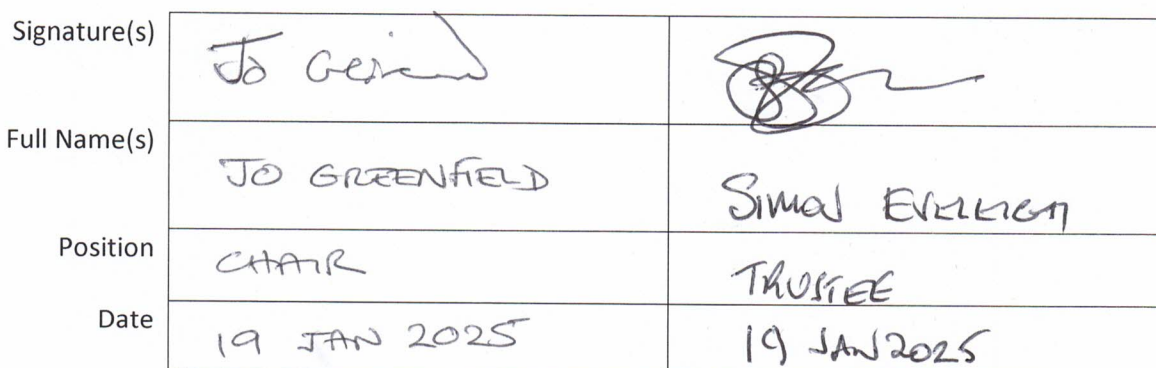 Signature(s) Jo
Full Name(s) JO GREENFIELD SIMON EVELEIGH
Position CHAIR TRUSTEE
Date 19 JAN 2025 19 JAN 2025